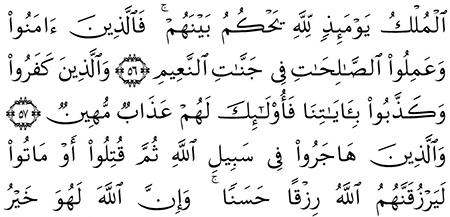 ٱلْمُلْكُ يَوْمَئِذٍ لِّلَّهِ يَحْكُمُ بَيْنَهُمْ ۚ فَٱلَّذِينَ ءَامَنُوا۟
وَعَمِلُوا۟ ٱلصَّـٰلِحَـٰتِ فِى جَنَّـٰتِ ٱلنَّعِيمِ ﴿٥٦﴾ وَٱلَّذِينَ كَفَرُوا۟
وَكَذَّبُوا۟ بِـَٔايَـٰتِنَا فَأُو۟لَـٰٓئِكَ لَهُمْ عَذَابٌ مُّهِينٌ ﴿٥٧﴾
وَٱلَّذِينَ هَاجَرُوا۟ فِى سَبِيلِ ٱللَّهِ ثُمَّ قُتِلُوٓا۟ أَوْ مَاتُوا۟
لَيَرْزُقَنَّهُمُ ٱللَّهُ رِزْقًا حَسَنًا ۚ وَإِنَّ ٱللَّهَ لَهُوَ خَيْرُ